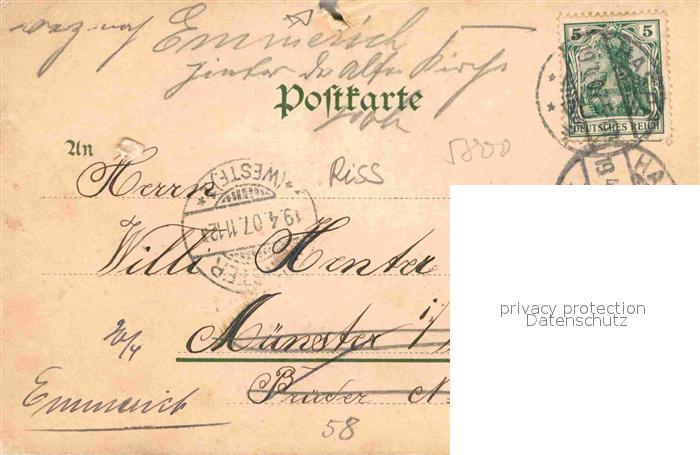 Emmerich
hinter der alten Kirche
Postkarte
5 5
DEUTSCHES REICH
An
Riss
Herrn
(WESTF.)
19.4.07.11-12
Willi Henter
Münster i/
20/4
Brüder N
Emmerich
58
privacy protection
Datenschutz